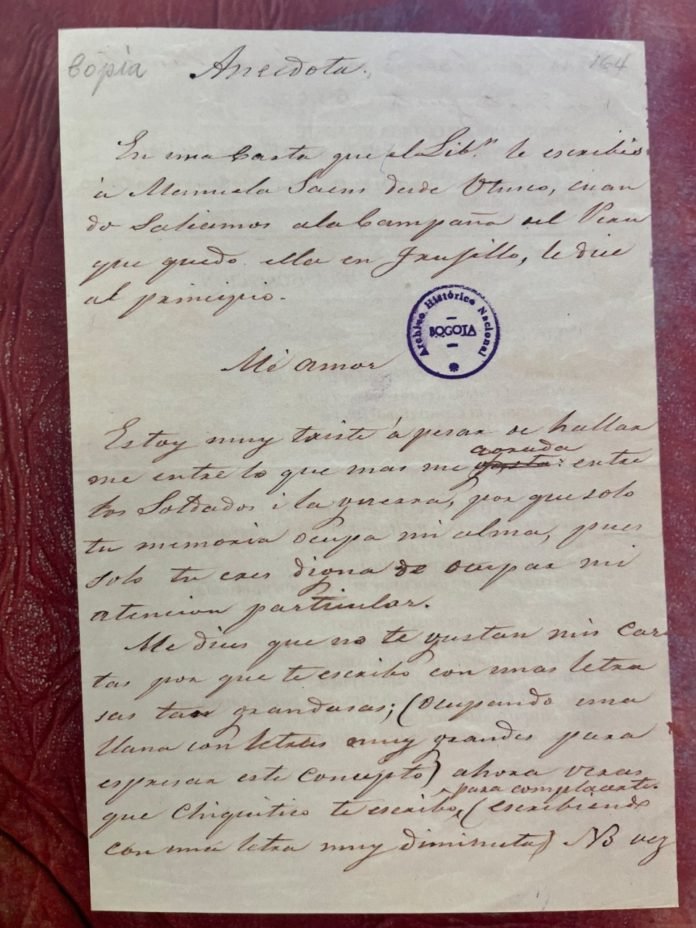 Copia
Anecdota.
164
En una Carta que el Lib.r le escribió
á Manuela Saens desde Otusco, cuan
do Saliamos ala Campaña del Perú
que quedo ella en Trujillo, le dice
al principio.
Archivo Histórico Nacional
BOGOTA
Mi amor
Estoy muy triste á pesar de hallar
me entre lo que mas me gusta agrada: entre
los Soldados i la guerra, por que solo
tu memoria ocupa mi alma, pues
solo tu eres digna de ocupar mi
atencion particular.
Me dices que no te gustan mis car
tas por que te escribo con unas letra
sas tan grandasas; (ocupando una
llana con letras muy grandes para
espresar este concepto) ahora veras
que Chiquitico te escribo, para complacerte (escribiendo
con una letra muy diminuta) No vez